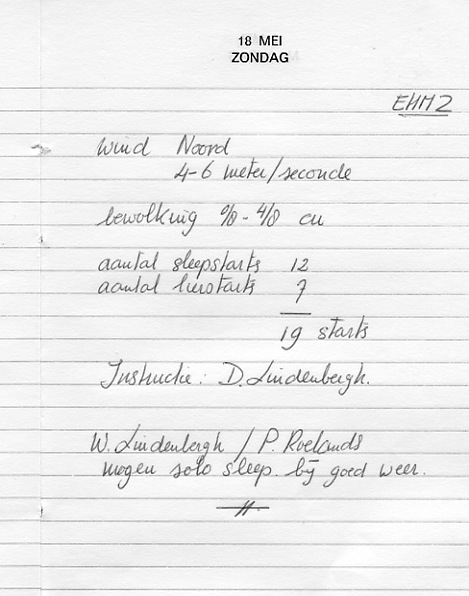 18 MEI
ZONDAG
EHMZ
Wind Noord
4-6 meter/seconde
bewolking 0/8 - 4/8 cu
aantal sleepstarts 12
aantal lierstarts 7
19 starts
Instructie: D. Lindenbergh.
W. Lindenbergh / P. Roelands
mogen solo sleep. bij goed weer.